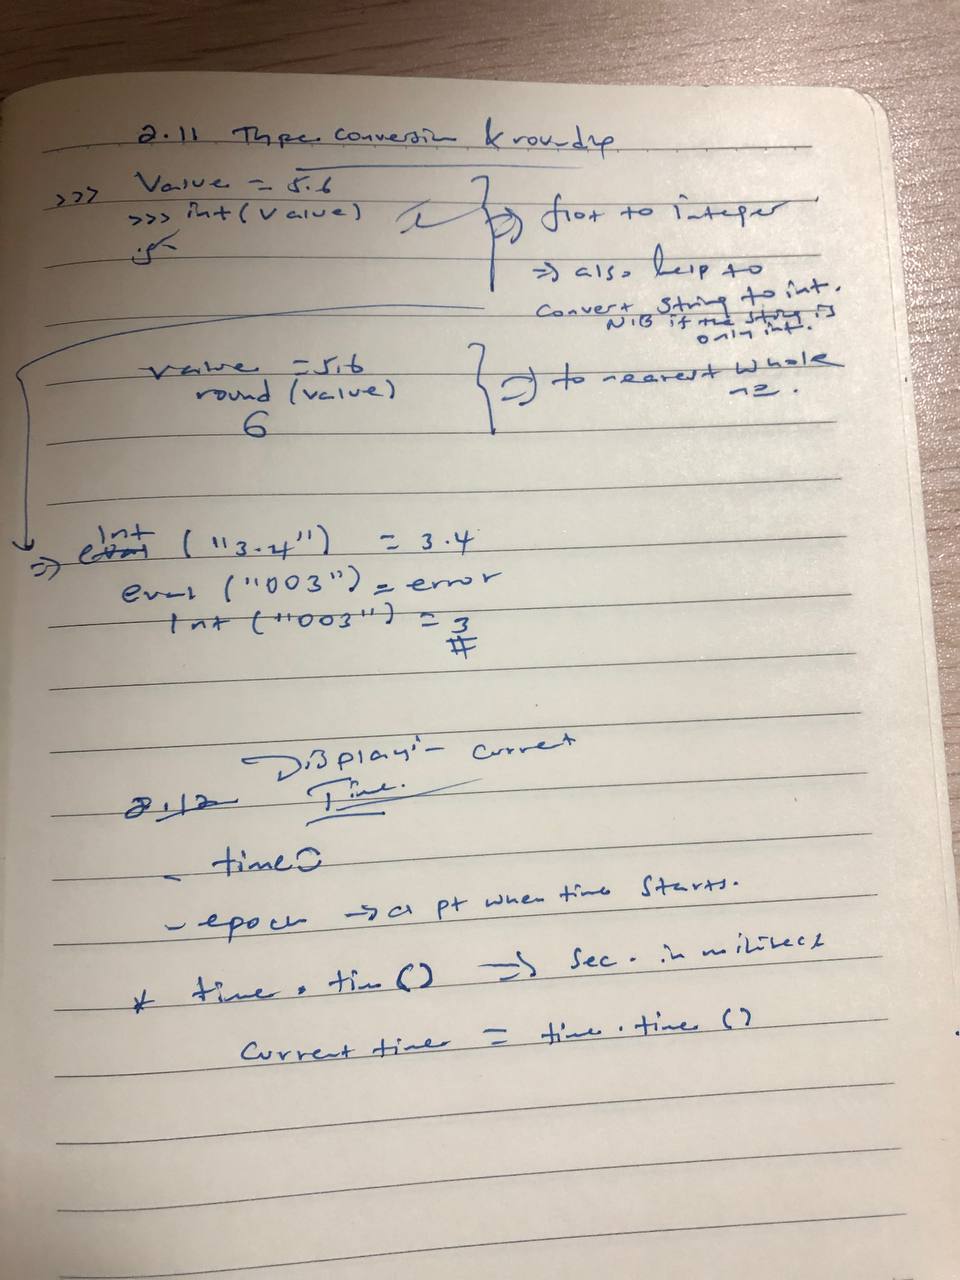 2.11 Type conversion & roundup
>>> Value = 5.6
>>> int(value)
5
=> flot to integer
=> also help to
convert string to int.
N/B if the string is
only int.
value = 5.6
round (value)
6
=> to nearest whole
no.
=> int ("3.4") = 3.4
eval ("003") = error
int ("003") = 3
2.12 Displayi- current
Time.
- time()
- epoch -> a pt when time starts.
* time . tim () => sec. in milisecs
current time = time . time ()